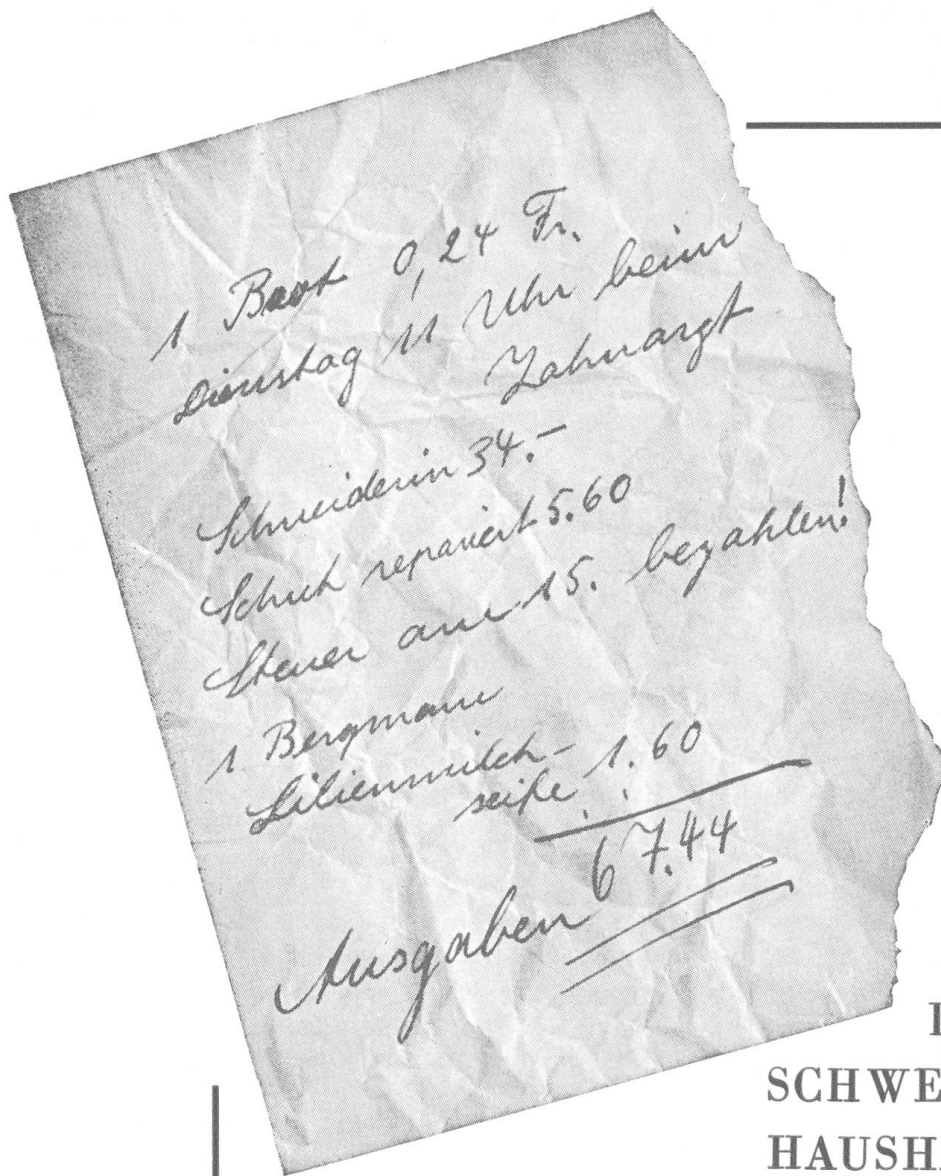 1 Brot 0,24 Fr.
Dienstag 11 Uhr beim
Zahnarzt
Schneiderin 34.–
Schuh repariert 5.60
Steuer am 15. bezahlen!
1 Bergmann
Lilienmilch-
seife 1.60
Ausgaben 67.44
SCHWE
HAUSHA